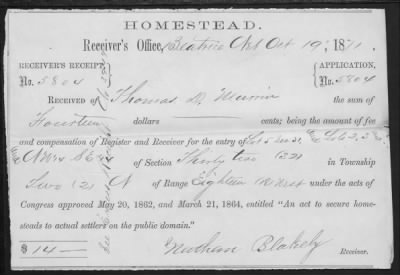 HOMESTEAD.
Receiver's Office, Beatrice Neb Oct 19, 1871.
RECEIVER'S RECEIPT, APPLICATION,
No. 5804 No. 5804
RECEIVED OF Thomas the sum of
Fourteen dollars cents; being the amount of fee
and compensation of Register and Receiver for the entry of
of Section Thirty two (32) in Township
Two (2) N of Range Eighteen West under the acts of
Congress approved May 20, 1862, and March 21, 1864, entitled "An act to secure home-
steads to actual settlers on the public domain."
$ 14 — Nathan Blakely Receiver.